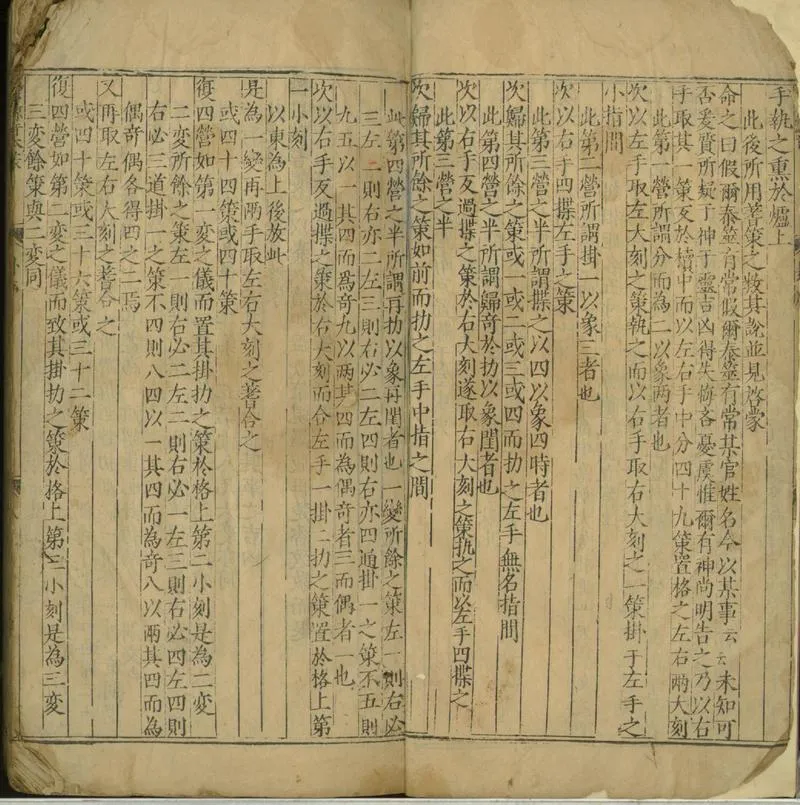 手執之熏於爐上
此後所用蓍策之數其訟並見啓蒙
命之曰假爾泰筮有常假爾泰筮有常某官姓名今以某事云云未知可
否爰質所疑于神于靈吉凶得失悔吝憂虞惟爾有神尚明告之乃以右
手取其一策反於櫝中而以左右手中分四十九策置格之左右兩大刻
此第一營所謂分而為二以象兩者也
次以左手取左大刻之策執之而以右手取右大刻之一策掛于左手之
小指間
此第二營所謂掛一以象三者也
次以右手四揲左手之策
此第三營之半所謂揲之以四以象四時者也
次歸其所餘之策或一或二或三或四而扐之左手無名指間
此第四營之半所謂歸奇於扐以象閏者也
次以右手反過揲之策於右大刻遂取右大刻之策執之而以左手四揲之
此第三營之半
次歸其所餘之策如前而扐之左手中指之間
此第四營之半所謂再扐以象再閏者也一變所餘之策左一則右必
三左二則右亦二左三則右必一左四則右亦四通掛一之策不五則
九五以一其四而爲奇九以兩其四而為偶奇者三而偶者一也
次以右手反過揲之策於右大刻而合左手一掛二扐之策置於格上第
一小刻
以東為上後放此
是為一變再兩手取左右大刻之蓍合之
或四十四策或四十策
復四營如第一变之儀而置其掛扐之策於格上第二小刻是為二变
二变所餘之策左一則右必二左二則右必一左三則右必四左四則
右必三通掛一之策不四則八四以一其四而為奇八以兩其四而為
偶奇偶各得四之二焉
又再取左右大刻之蓍合之
或四十策或三十六策或三十二策
復四營如第二变之儀而致其掛扐之策於格上第三小刻是為三变
三变餘策與二变同